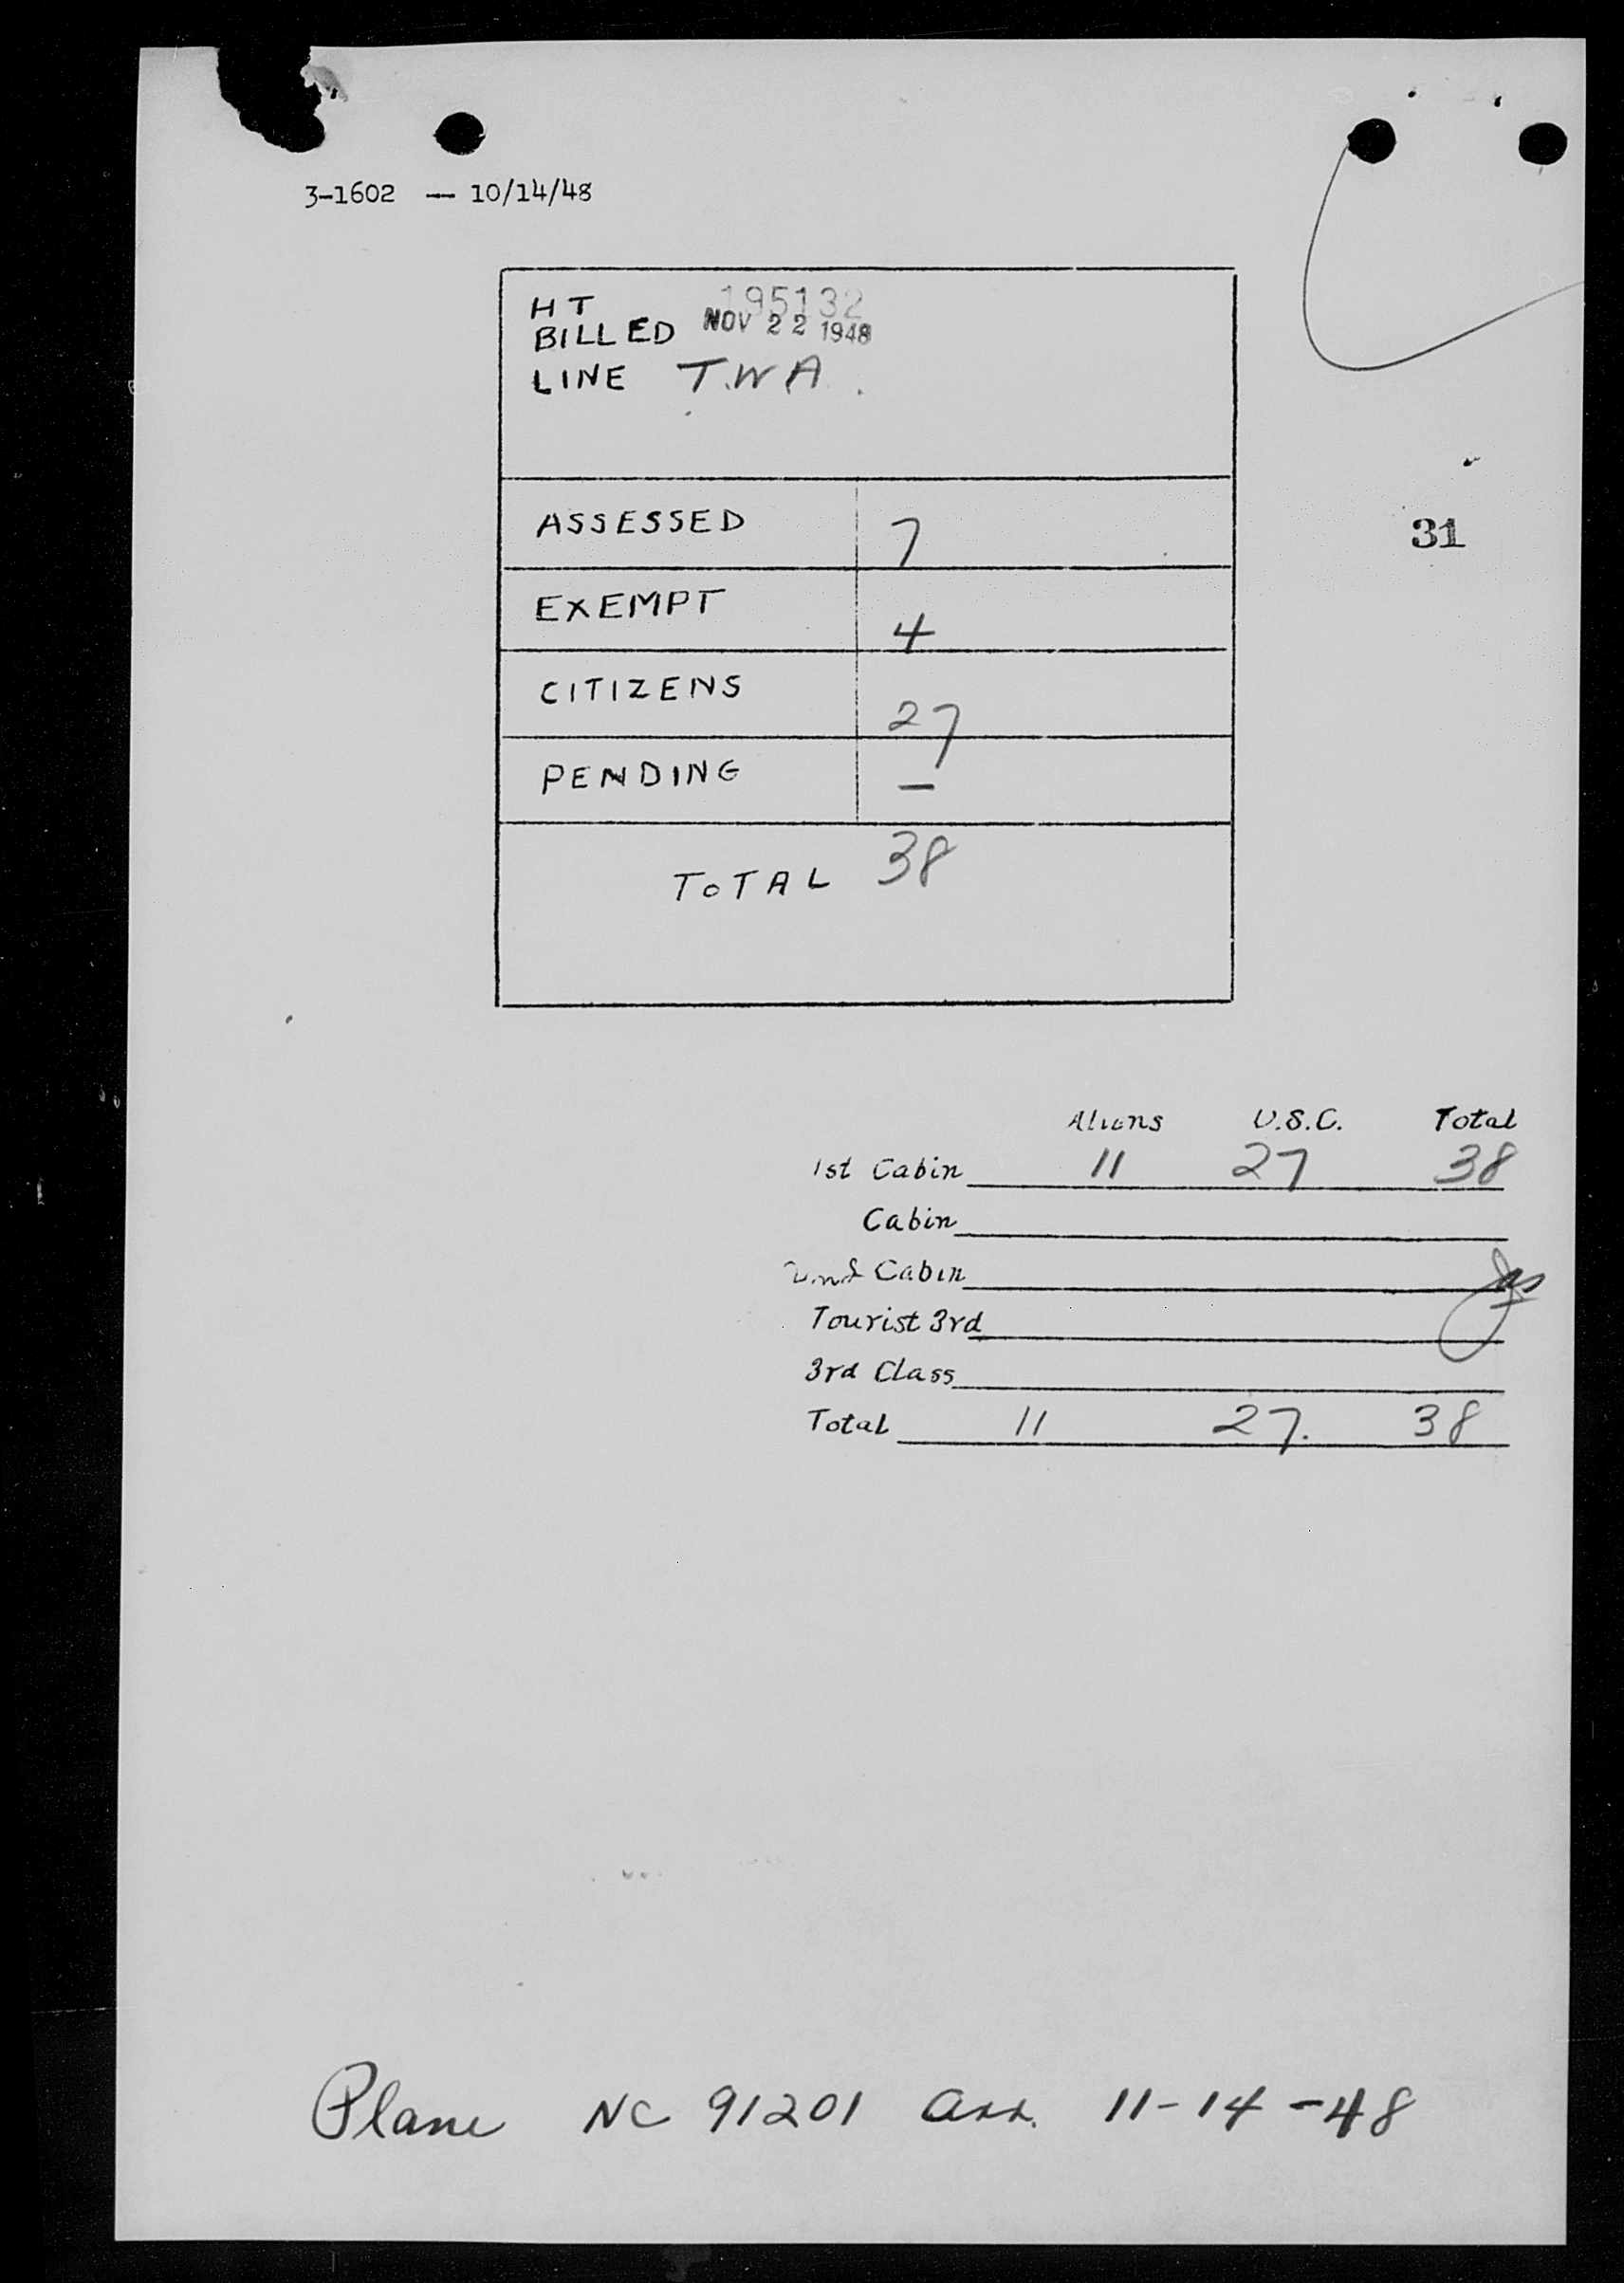 3-1602 — 10/14/48
HT 195132
BILLED NOV 22 1948
LINE T.W.A.
ASSESSED 7
31
EXEMPT 4
CITIZENS 27
PENDING —
TOTAL 38
Aliens U.S.C. Total
1st Cabin 11 27 38
Cabin
2nd Cabin
Tourist 3rd
3rd Class
Total 11 27. 38
Plane NC 91201 arr. 11-14-48